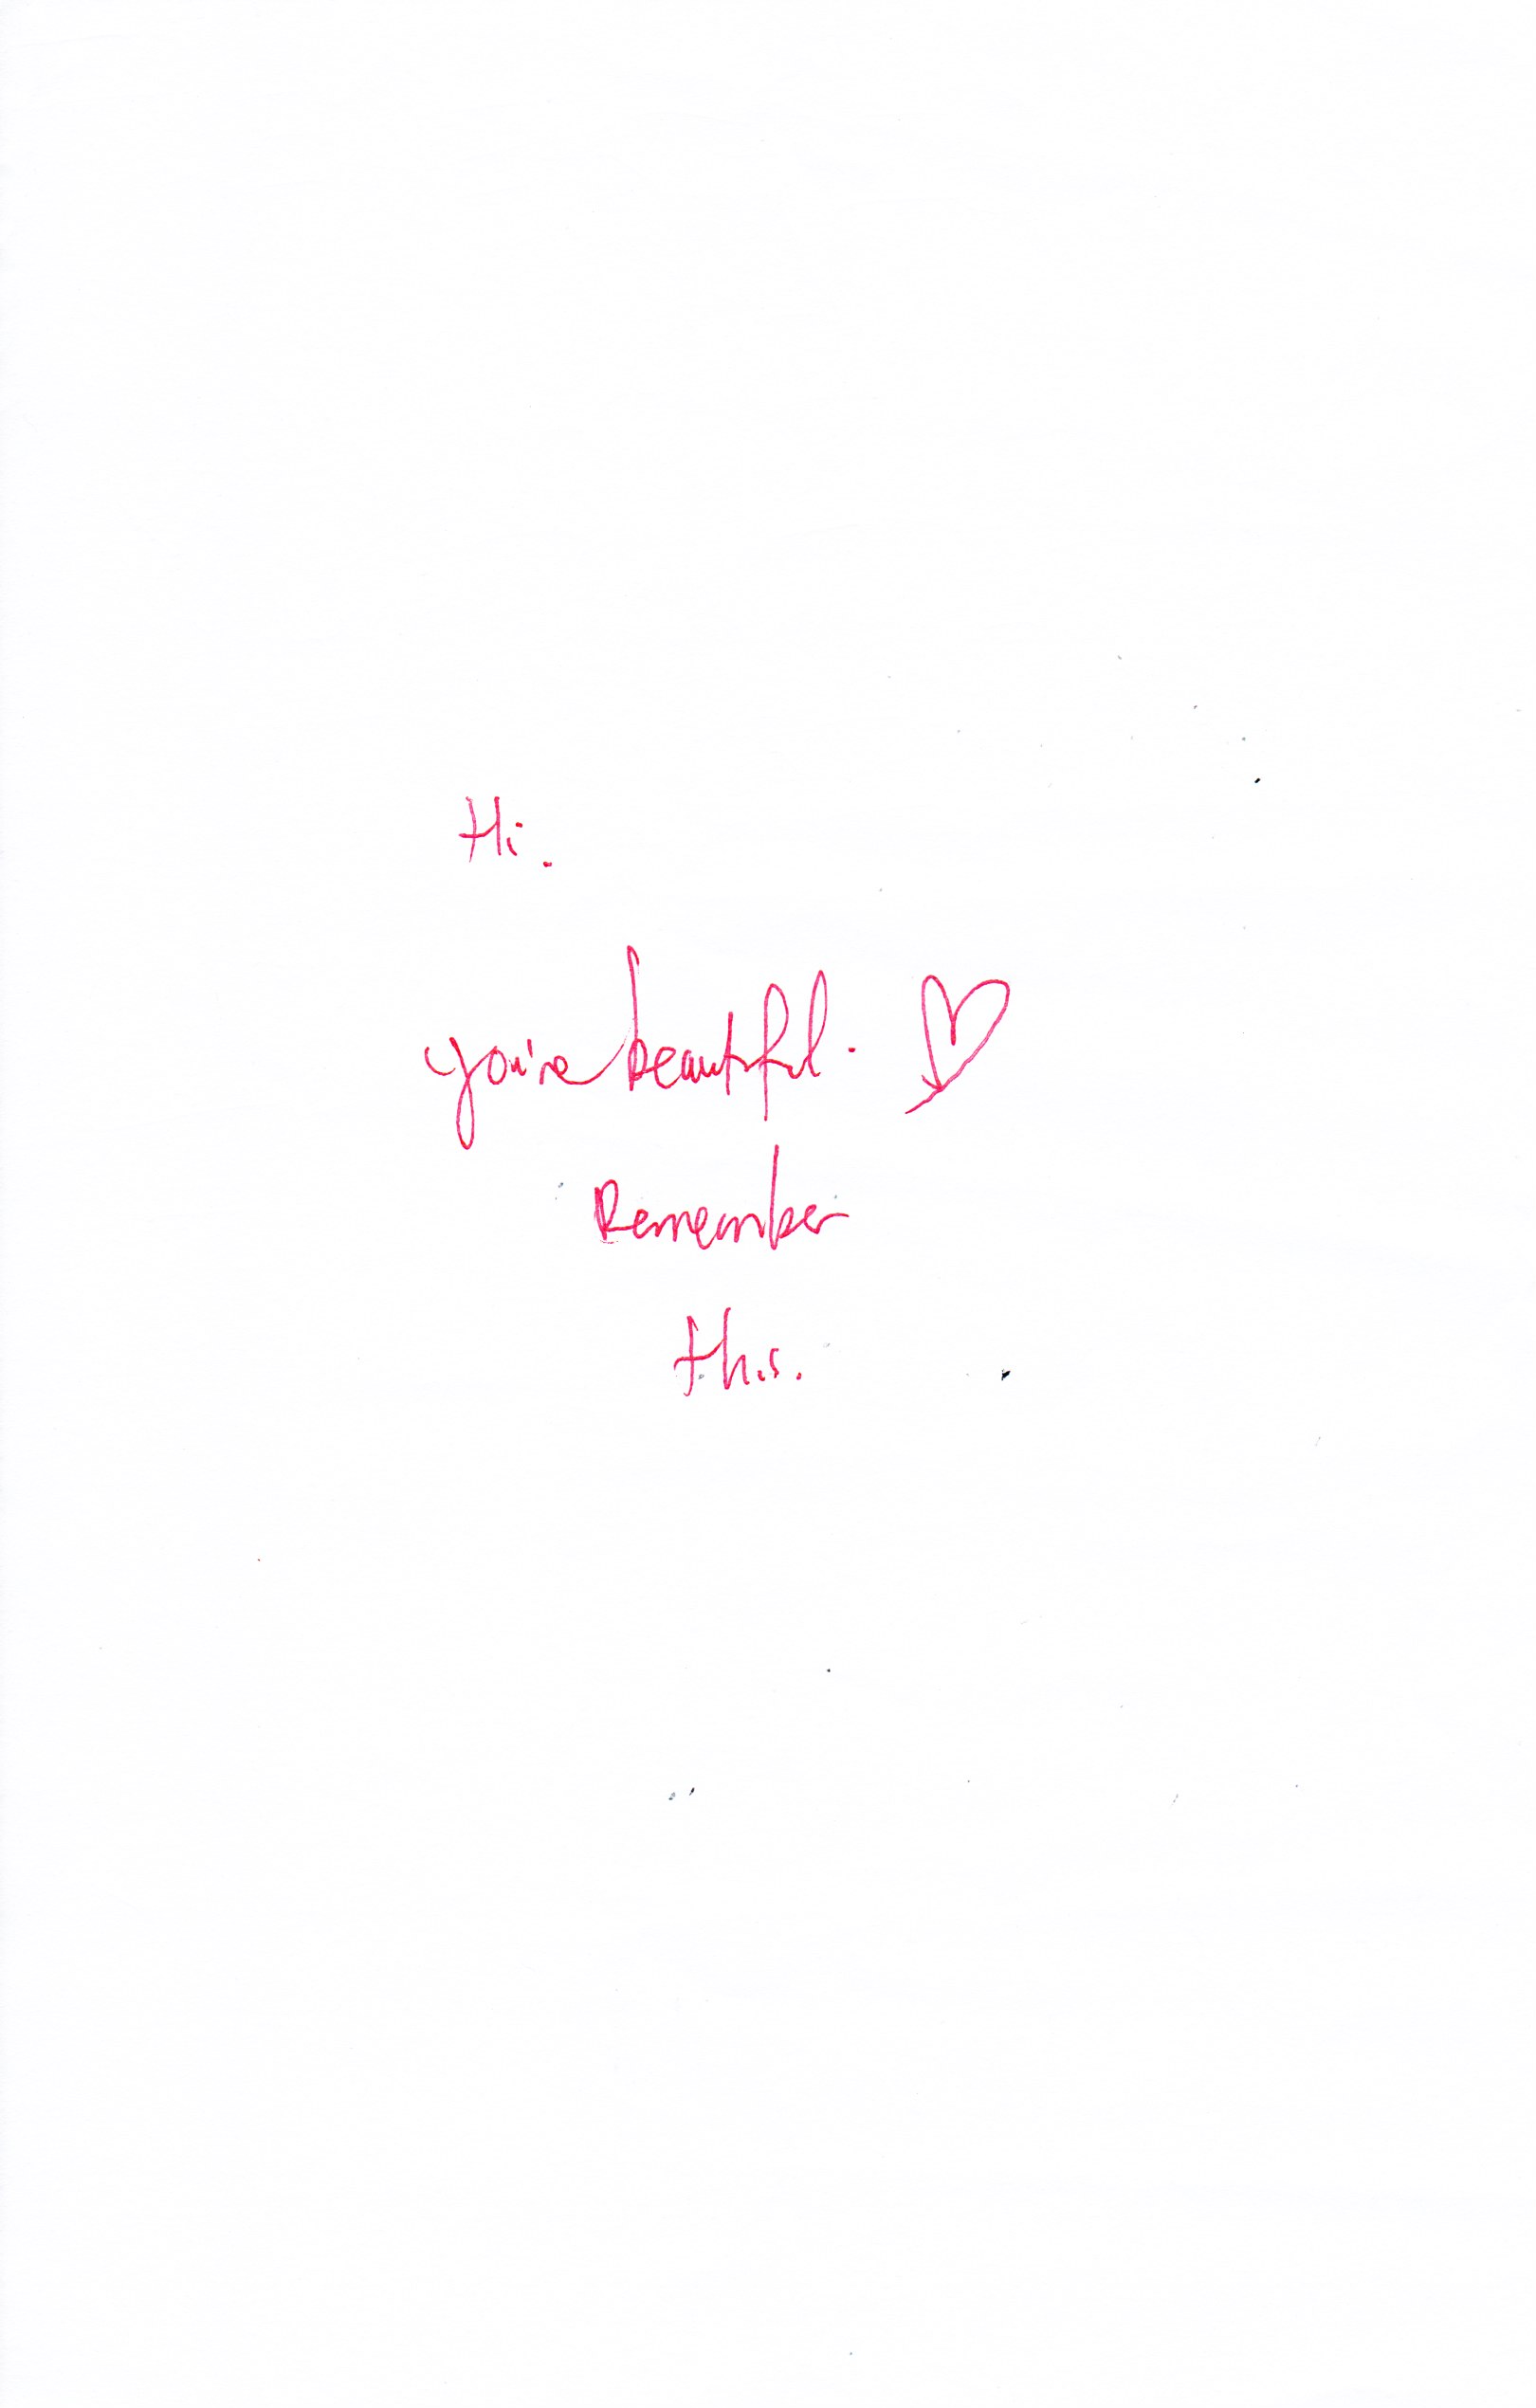 Hi.
you're beautiful.
Remember
this.